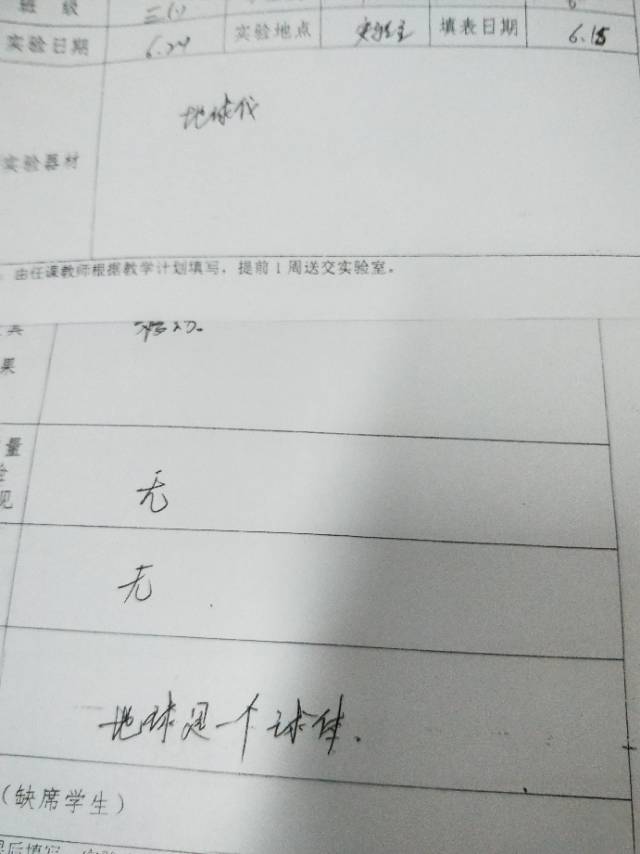 班 级 三(1)
实验日期 6.24 实验地点 实验室 填表日期 6.15
地球仪
实验器材
由任课教师根据教学计划填写，提前1周送交实验室。
果
量
现
无
无
地球是一个球体.
(缺席学生)